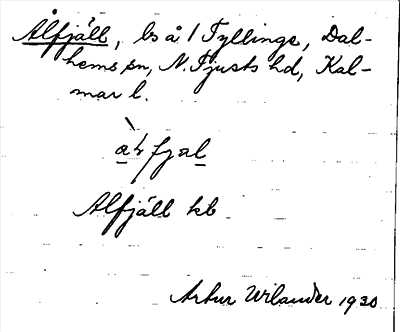 Ålfjäll, ls å 1 Tyllinge, Dal-
hems sn, N. Tjusts hd, Kal-
mar l.
Alfjäll kb
Artur Wilander 1930